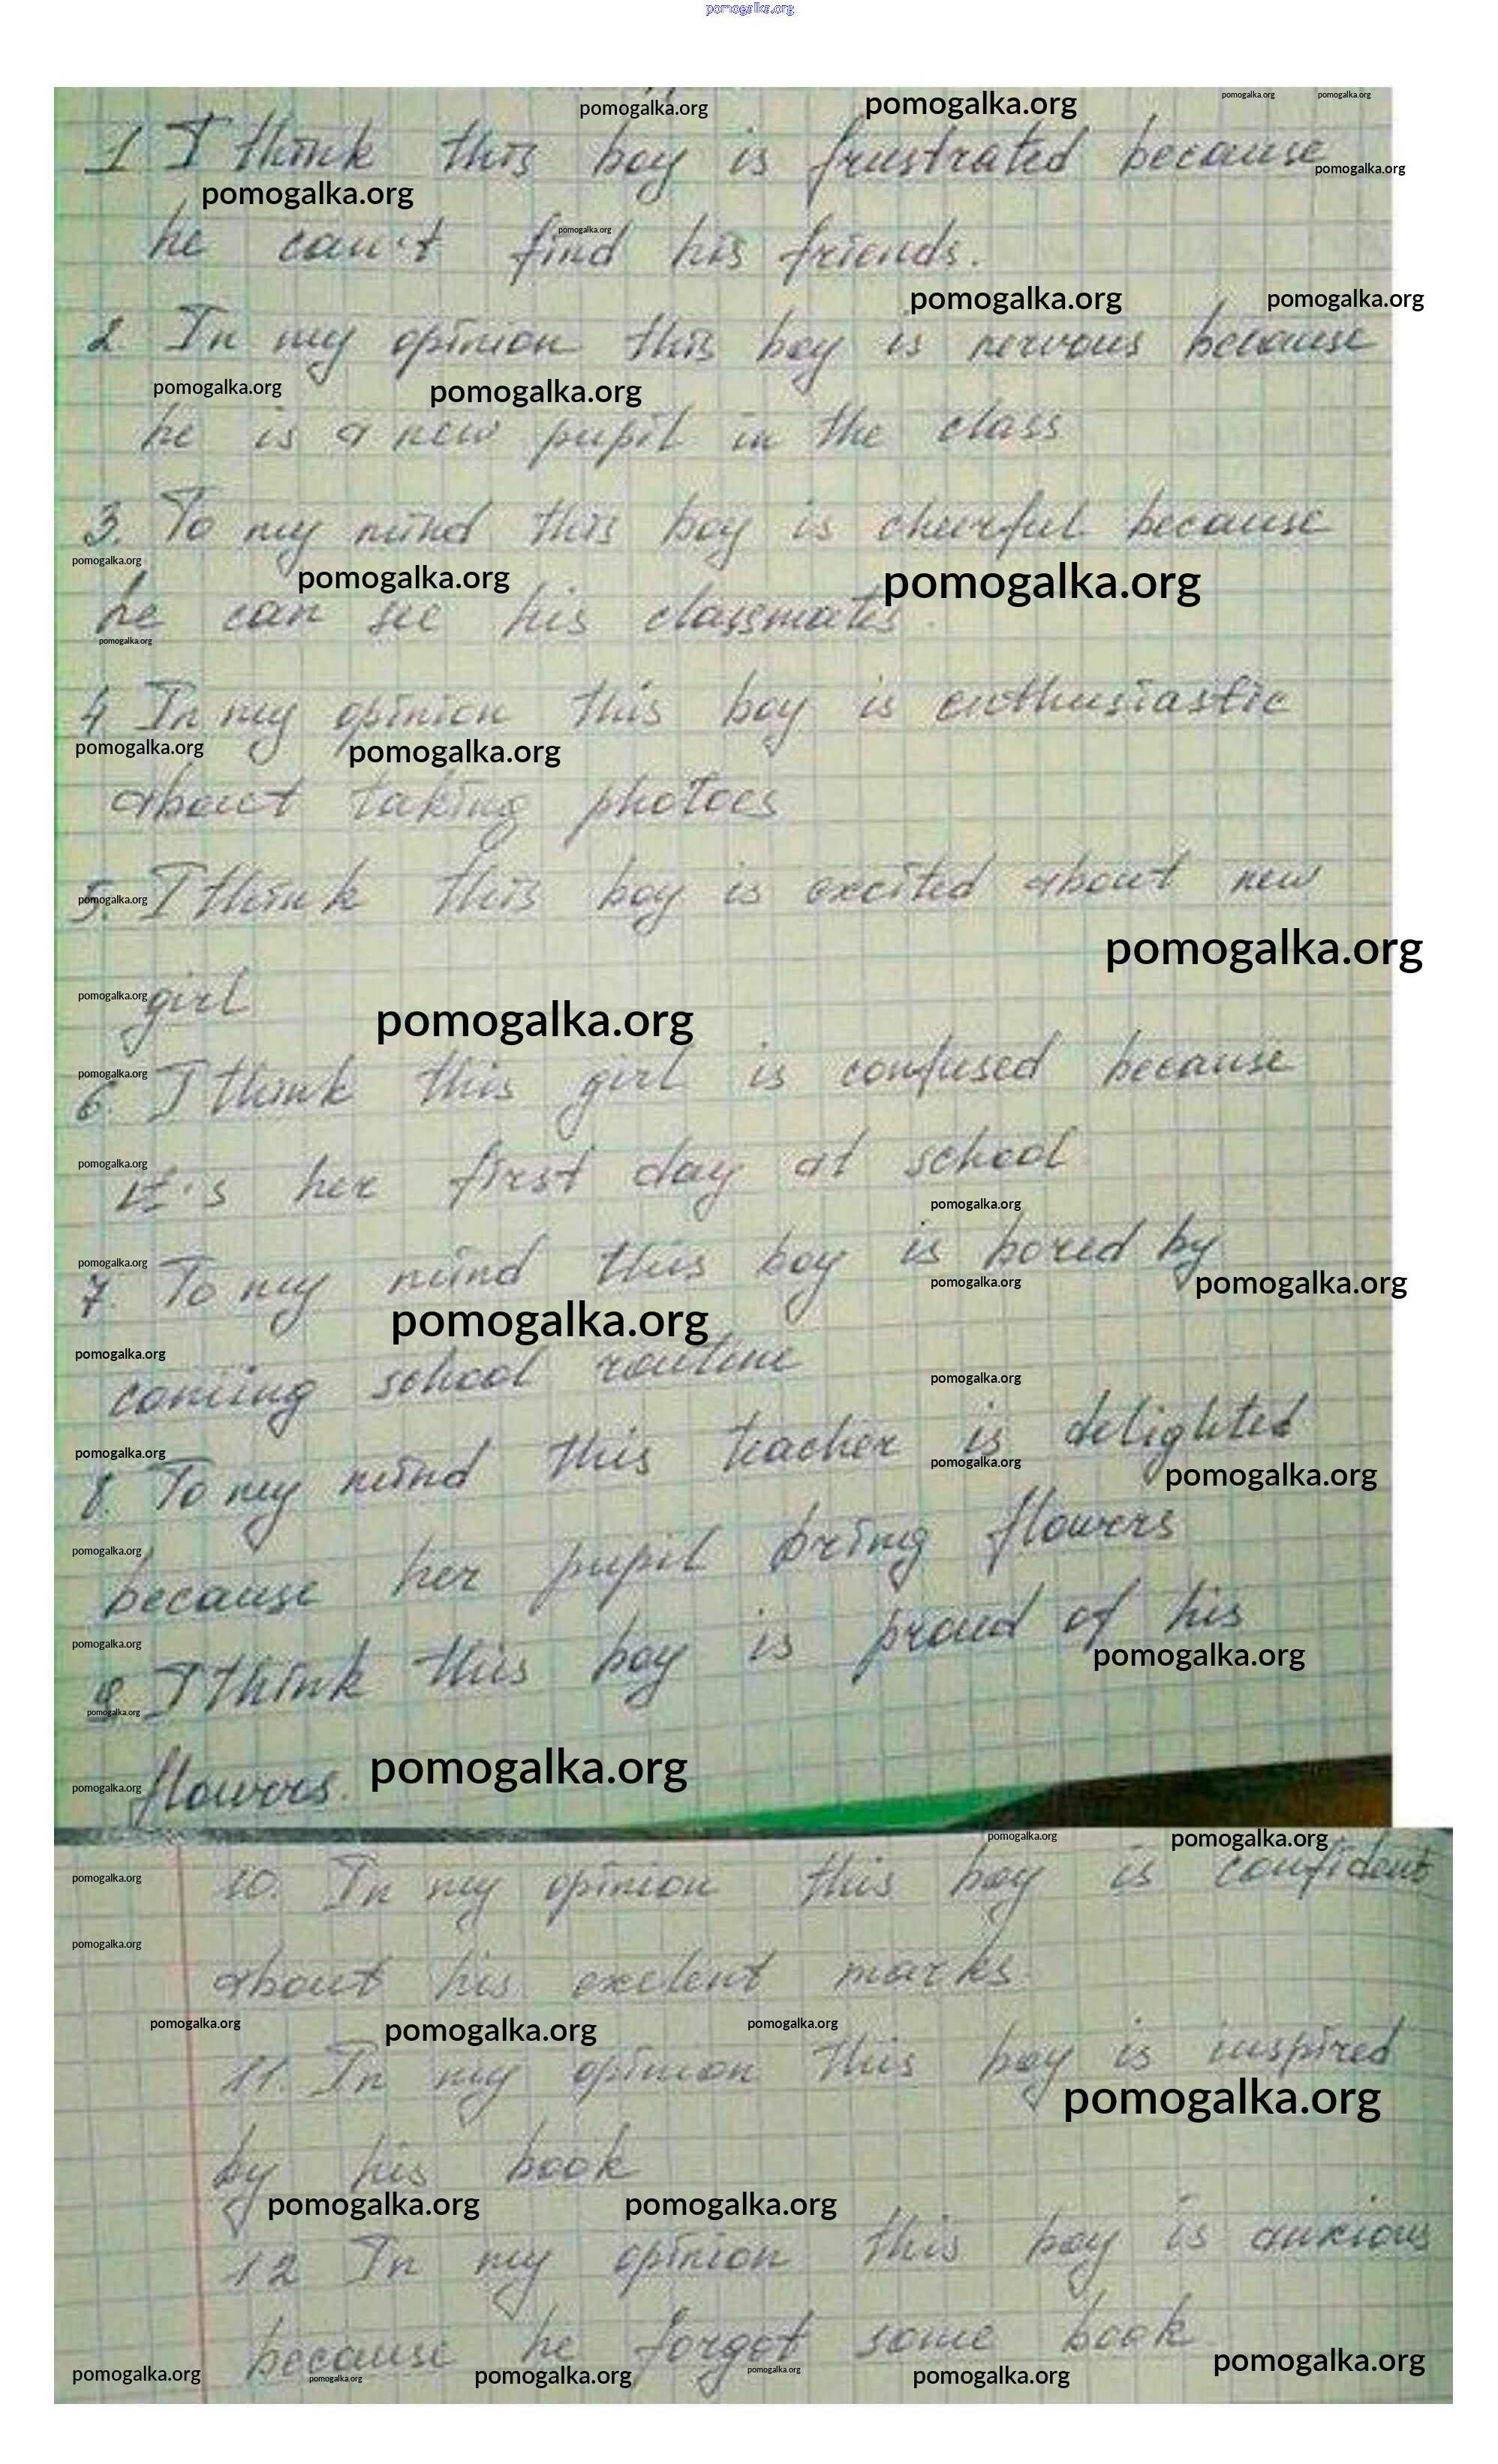 pomogalka.org
1 I think this boy is frustrated because
he can't find his friends.
2 In my opinion this boy is nervous because
he is a new pupil in the class
3. To my mind this boy is cheerful because
he can see his classmates.
4 In my opinion this boy is enthusiastic
about taking photoes
5. I think this boy is excited about new
girl
6. I think this girl is confused because
it's her first day at school
7. To my mind this boy is bored by
coming school routine
8. To my mind this teacher is delighted
because her pupil bring flowers
9. I think this boy is proud of his
flowers.
10. In my opinion this boy is confident
about his exelent marks.
11. In my opinion this boy is inspired
by his book
12 In my opinion this boy is anxious
because he forgot some book